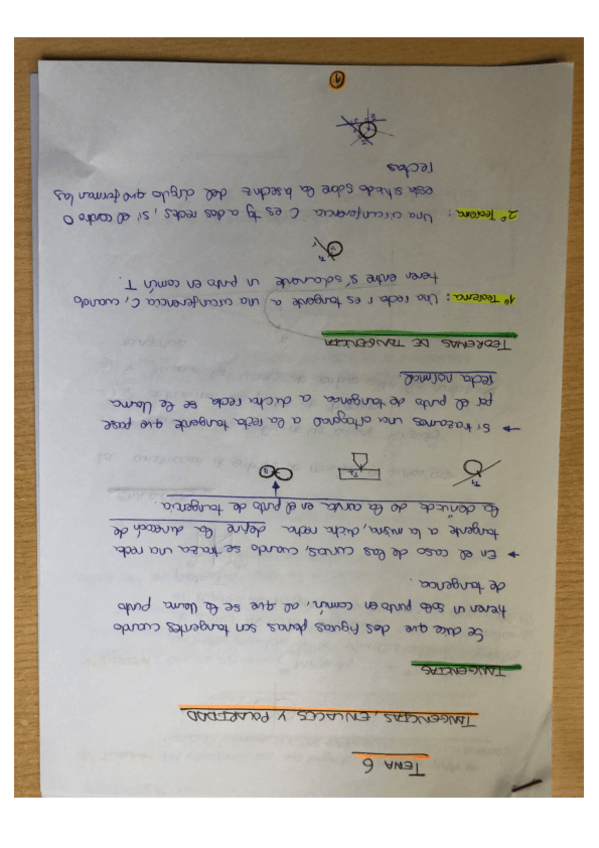 TEMA 6
TANGENCIAS, ENLACES Y POLARIDAD
TANGENCIAS
Se dice que dos figuras planas son tangentes cuando
tienen un solo punto en común, al que se le llama punto
de tangencia.
→ En el caso de las curvas, cuando se traza una recta
tangente a la misma, dicha recta define la dirección de
la derivada de la curva en el punto de tangencia.
→ Si trazamos una ortogonal a la recta tangente que pase
por el punto de tangencia a dicha recta se le llama
recta normal
TEOREMAS DE TANGENCIA
1º Teorema: Una recta r es tangente a una circunferencia C, cuando
tienen entre sí solamente un punto en común T.
2º Teorema: Una circunferencia C es tg a dos rectas, si el centro O
esta situado sobre la bisectriz del ángulo que forman las
rectas
1